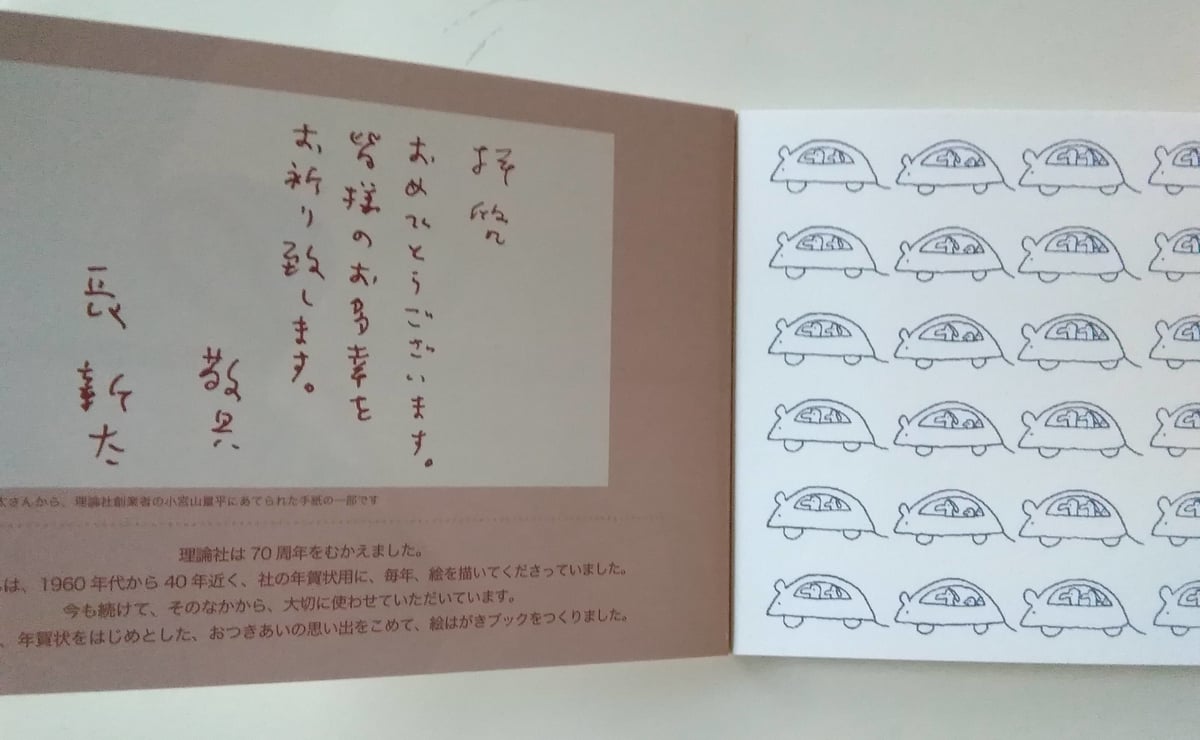 拝啓
おめでとうございます。
皆様のお多幸を
お祈り致します。
敬具
長 新太
太さんから、理論社創業者の小宮山量平にあてられた手紙の一部です
理論社は70周年をむかえました。
は、1960年代から40年近く、社の年賀状用に、毎年、絵を描いてくださっていました。
今も続けて、そのなかから、大切に使わせていただいています。
、年賀状をはじめとした、おつきあいの思い出をこめて、絵はがきブックをつくりました。